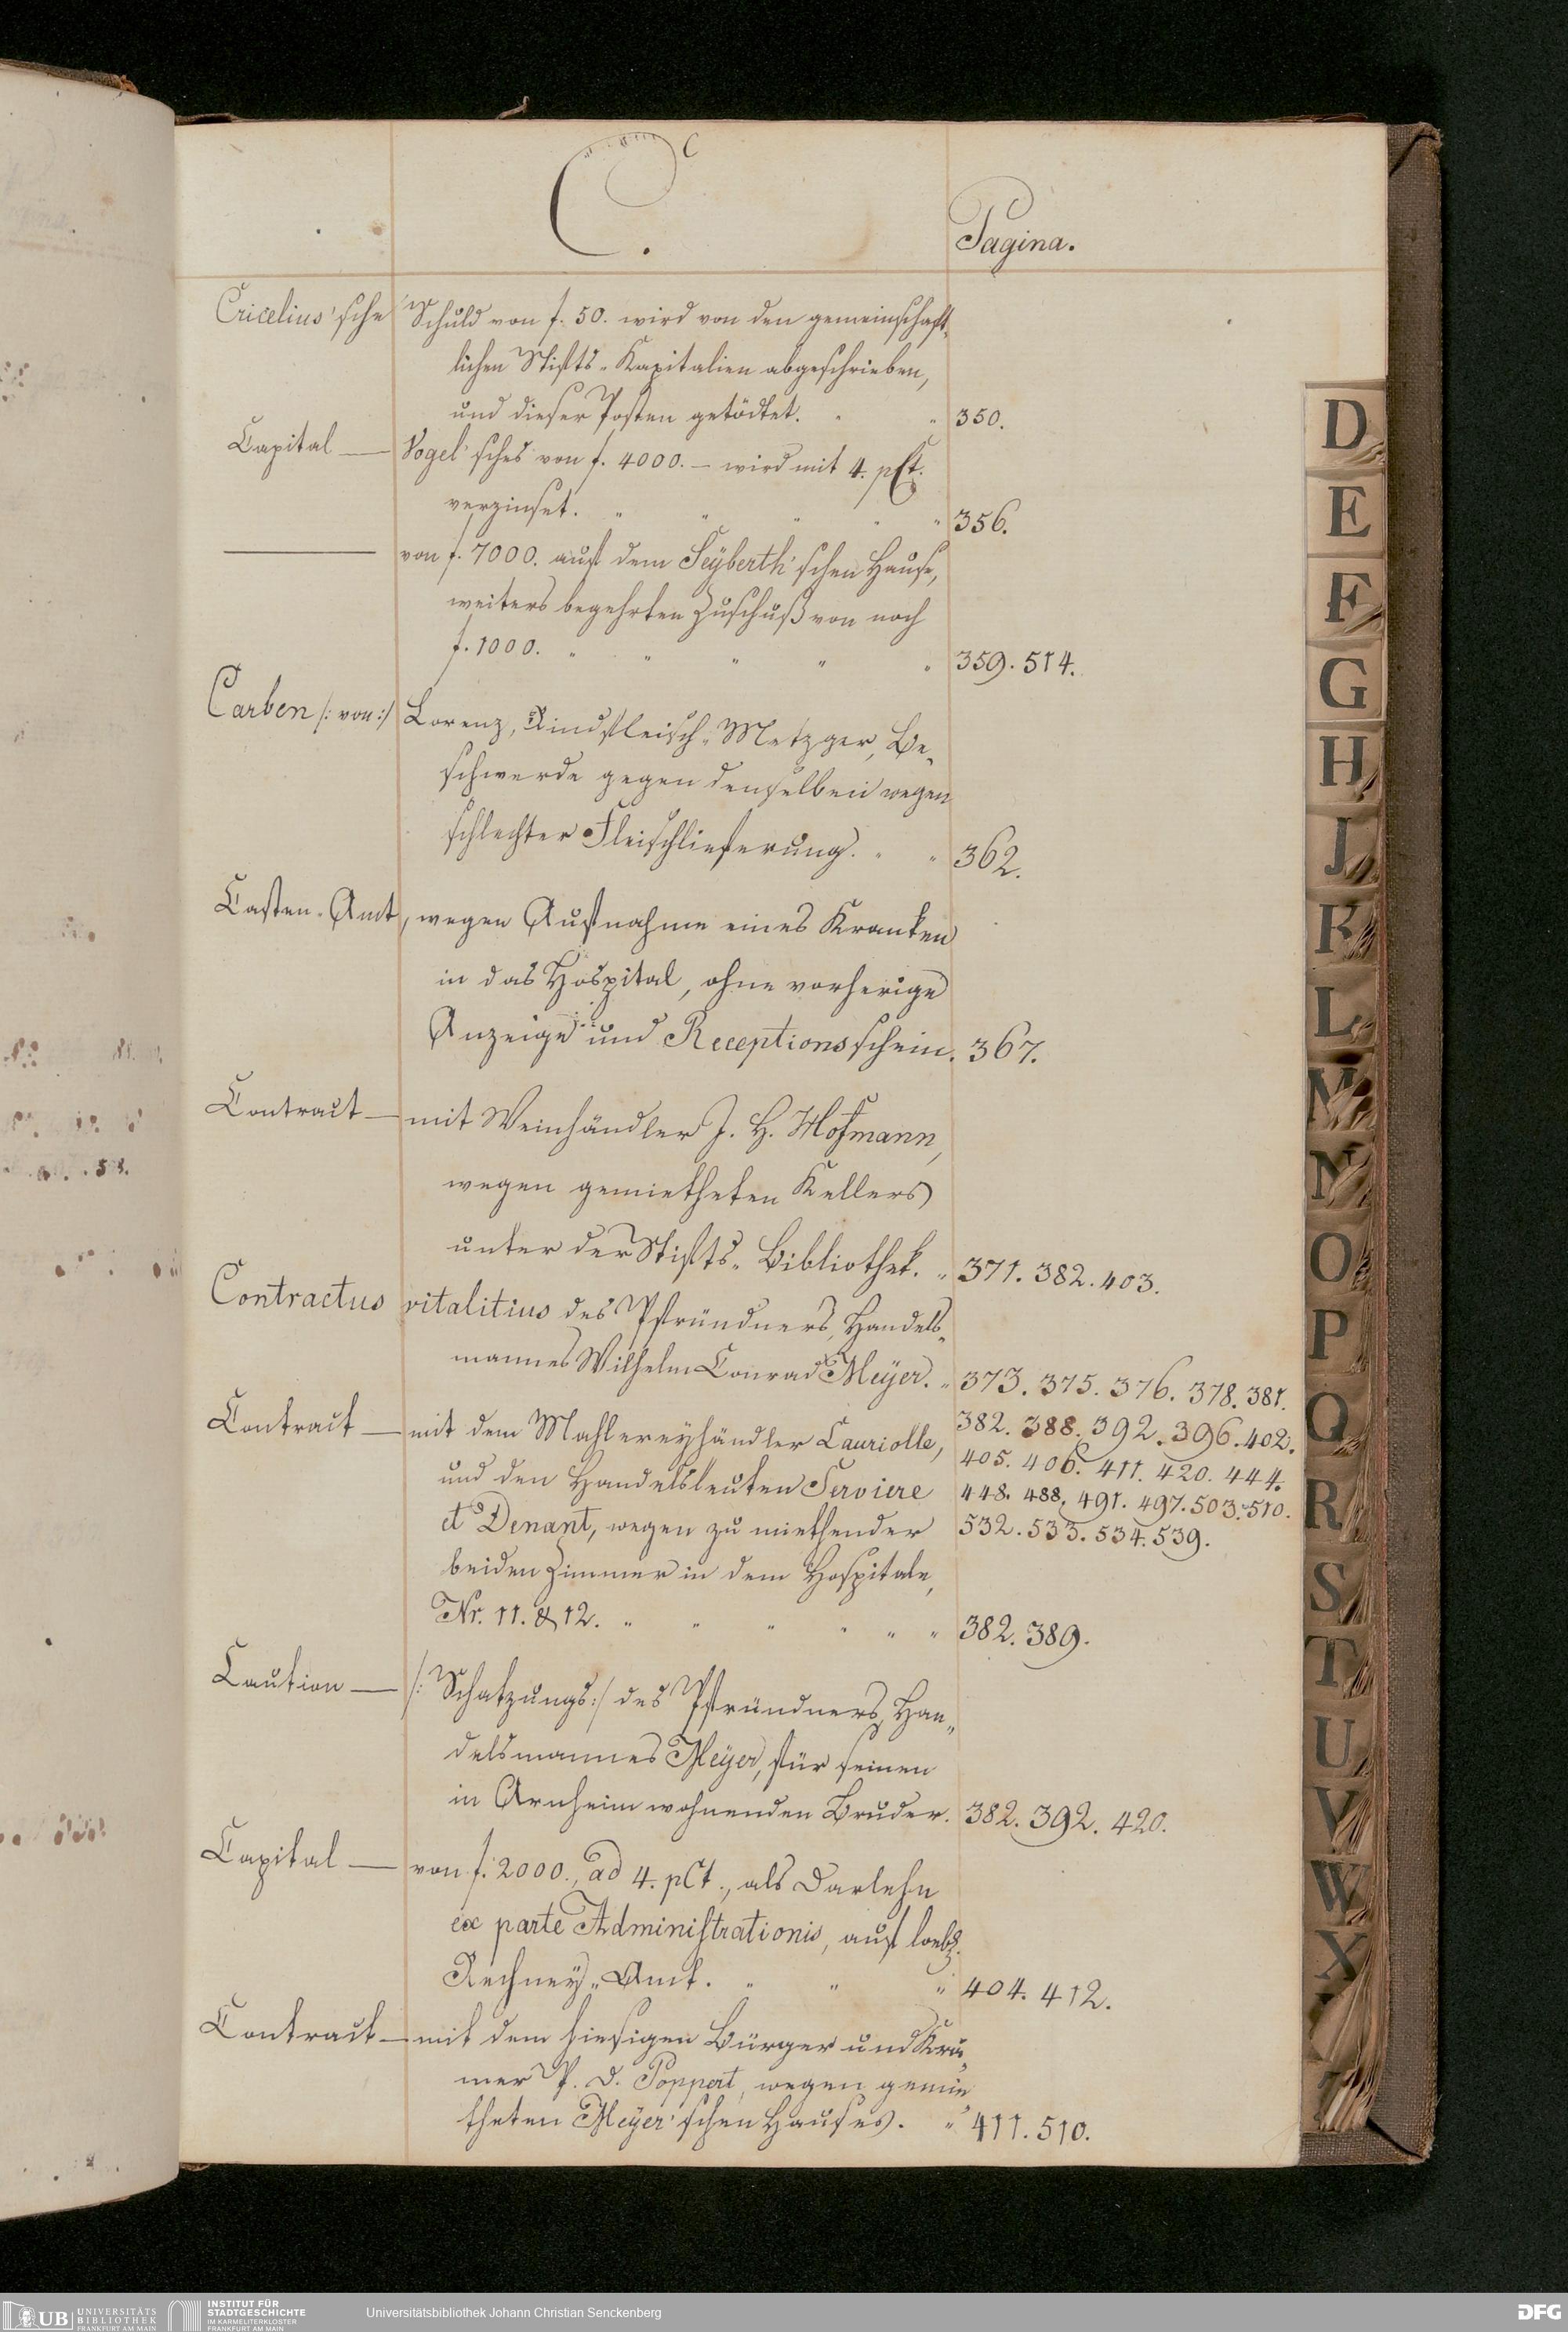 C.
Pagina.
Cricelius'sche Schuld von f. 50. wird von den gemeinschaft-
lichen Stifts-Kapitalien abgeschrieben,
und dieser Posten getödtet. " " 350.
Capital — Vogel'sches von f. 4000. — wird mit 4. pCt.
verzinset. " " " " " 356.
— von f. 7000. auf dem Seÿberth'schen Hause,
weiters begehrten Zuschuß von noch
f. 1000. " " " " " 359. 514.
Carben /: von :/ Lorenz, Rindfleisch-Metzger, Be-
schwerde gegen denselben wegen
schlechter Fleischlieferung. " " 362.
Casten-Amt, wegen Aufnahme eines Kranken
in das Hospital, ohne vorherige
Anzeige und Receptionsschein. 367.
Contract — mit Weinhändler J. H. Hofmann,
wegen gemietheten Kellers
unter der Stifts-Bibliothek. " 371. 382. 403.
Contractus vitalitius des Pfründners, Handels-
mannes Wilhelm Conrad Meÿer. " 373. 375. 376. 378. 381.
382. 388. 392. 396. 402.
Contract — mit dem Mahlereyhändler Cauriolle,
405. 406. 411. 420. 444.
und den Handelsleuten Serviere
448. 488. 491. 497. 503. 510.
et Denant, wegen zu miethender
532. 533. 534. 539.
beiden Zimmer in dem Hospitale,
Nr. 11. & 12. " " " " " " 382. 389.
Caution — /: Schatzungs :/ des Pfründners, Han-
delsmannes Meÿer, für seinen
in Arnheim wohnenden Bruder. 382. 392. 420.
Capital — von f. 2000., ad 4. pCt., als Darlehn
ex parte Administrationis, auf loebl.
Rechneÿ-Amt. " " " 404. 412.
Contract — mit dem hiesigen Bürger und Krä-
mer P. D. Poppert, wegen gemie
theten Meÿer'schen Hauses. " 411. 510.
D
E
F
G
H
J
K
L
M
N
O
P
Q
R
S
T
U
V
W
X
UB UNIVERSITÄTS
BIBLIOTHEK
FRANKFURT AM MAIN
INSTITUT FÜR
STADTGESCHICHTE
IM KARMELITERKLOSTER
FRANKFURT AM MAIN
Universitätsbibliothek Johann Christian Senckenberg
DFG